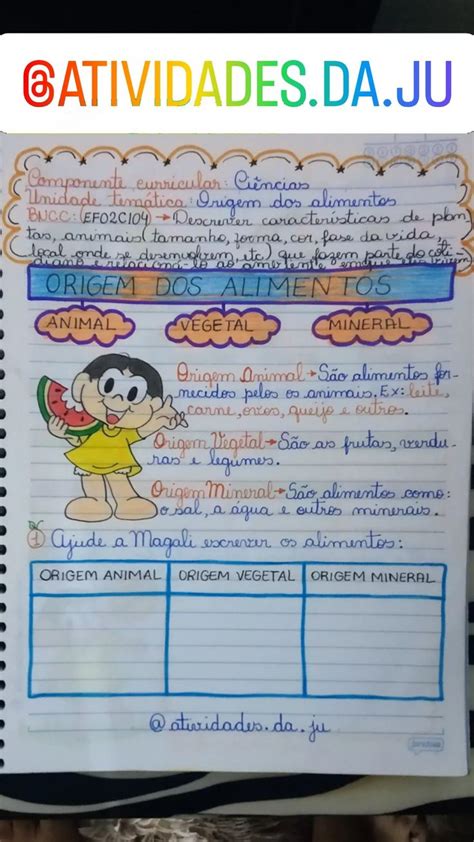 @ATIVIDADES.DA.JU
Componente curricular: Ciências
Unidade temática: Origem dos alimentos
BNCC: (EF02CI04) → Descrever características de plan
tas, animais (tamanho, forma, cor, fase da vida,
local onde se desenvolvem, etc) que fazem parte do coti
diano e relacioná-lo ao ambiente
ORIGEM DOS ALIMENTOS
ANIMAL VEGETAL MINERAL
Origem Animal → São alimentos for-
necidos pelos os animais. Ex: leite,
carne, ovos, queijo e outros.
Origem Vegetal → São as frutas, verdu-
ras e legumes.
Origem Mineral → São alimentos como:
o sal, a água e outros minerais.
1 Ajude a Magali escrever os alimentos:
ORIGEM ANIMAL ORIGEM VEGETAL ORIGEM MINERAL
@atividades.da.ju